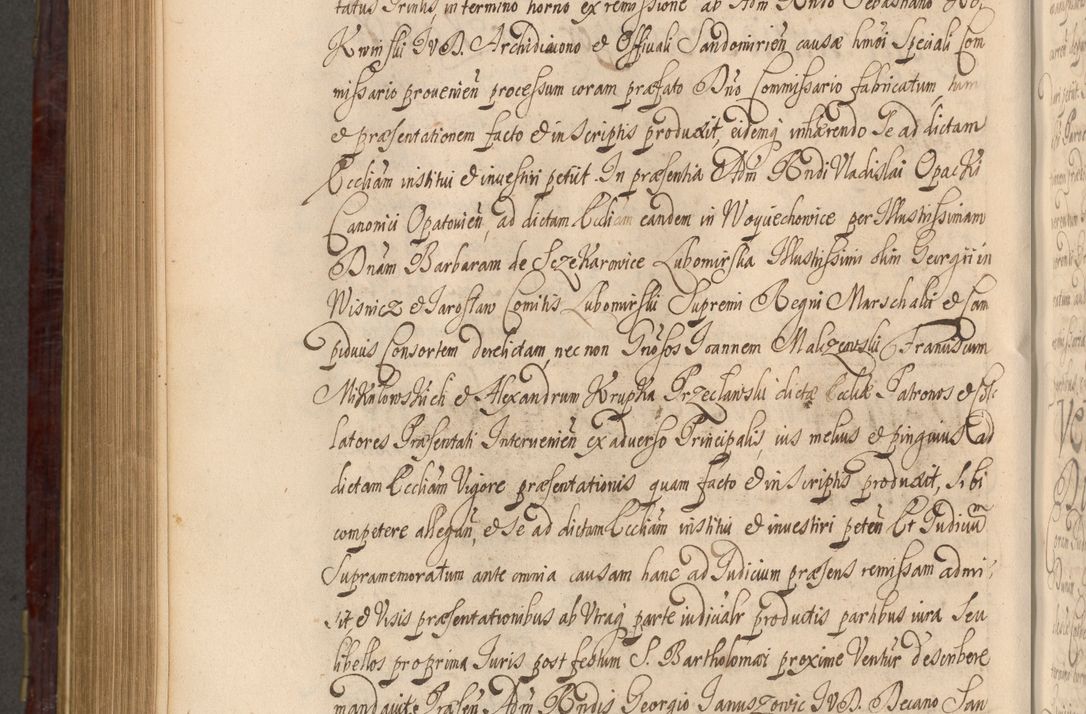 tatus Trinus, in termino horno ex remissione ab Adm Rndo Sebastiano Ko-
Kwinski JVD. Archidiacono et Officiali Sandomirien causæ hmoi Speciali Com
missario provenien processum coram præfato Dno Commissario fabricatum, tum
et præsentationem facto et in Scriptis produxit, eidemq inhærendo Se ad dictam
Eccliam institui et investiri petiit. In præsentia Adm Rndi Vladislai Opacki
Canonici Opatovien, ad dictam Eccliam eandem in Woyciechowice per Illustrissimam
Dnam Barbaram de Sczekarowice Lubomirska Illustrissimi olim Georgii in
Wisnicz et Jaroslaw Comitis Lubomirski Supremi Regni Marschalci et Cam
piducis Consortem derelictam, nec non Gnosos Joannem Maliszewski Franciscum
Mikulowski et Alexandrum Krupka Przeclawski dictæ Eccliæ Patronos et Col-
latores Præsentati Intervenien ex adverso Principalis, ius melius et pinguius ad
dictam Eccliam Vigore præsentationis quam facto et in Scriptis produxit, Sibi
competere allegan, et Se ad dictam Eccliam institui et investiri peten Et Judicium
Supramemoratum ante omnia causam hanc ad Judicium præsens remissam admi-
sit et Visis præsentationibus ab Utraq parte iudicialr productis partibus iura Seu
libellos pro prima Juris post festum S. Bartholomæi proxime Ventur describere
mandavit Præsen Adm Rndis Georgio Januszowic JVD. Decano San